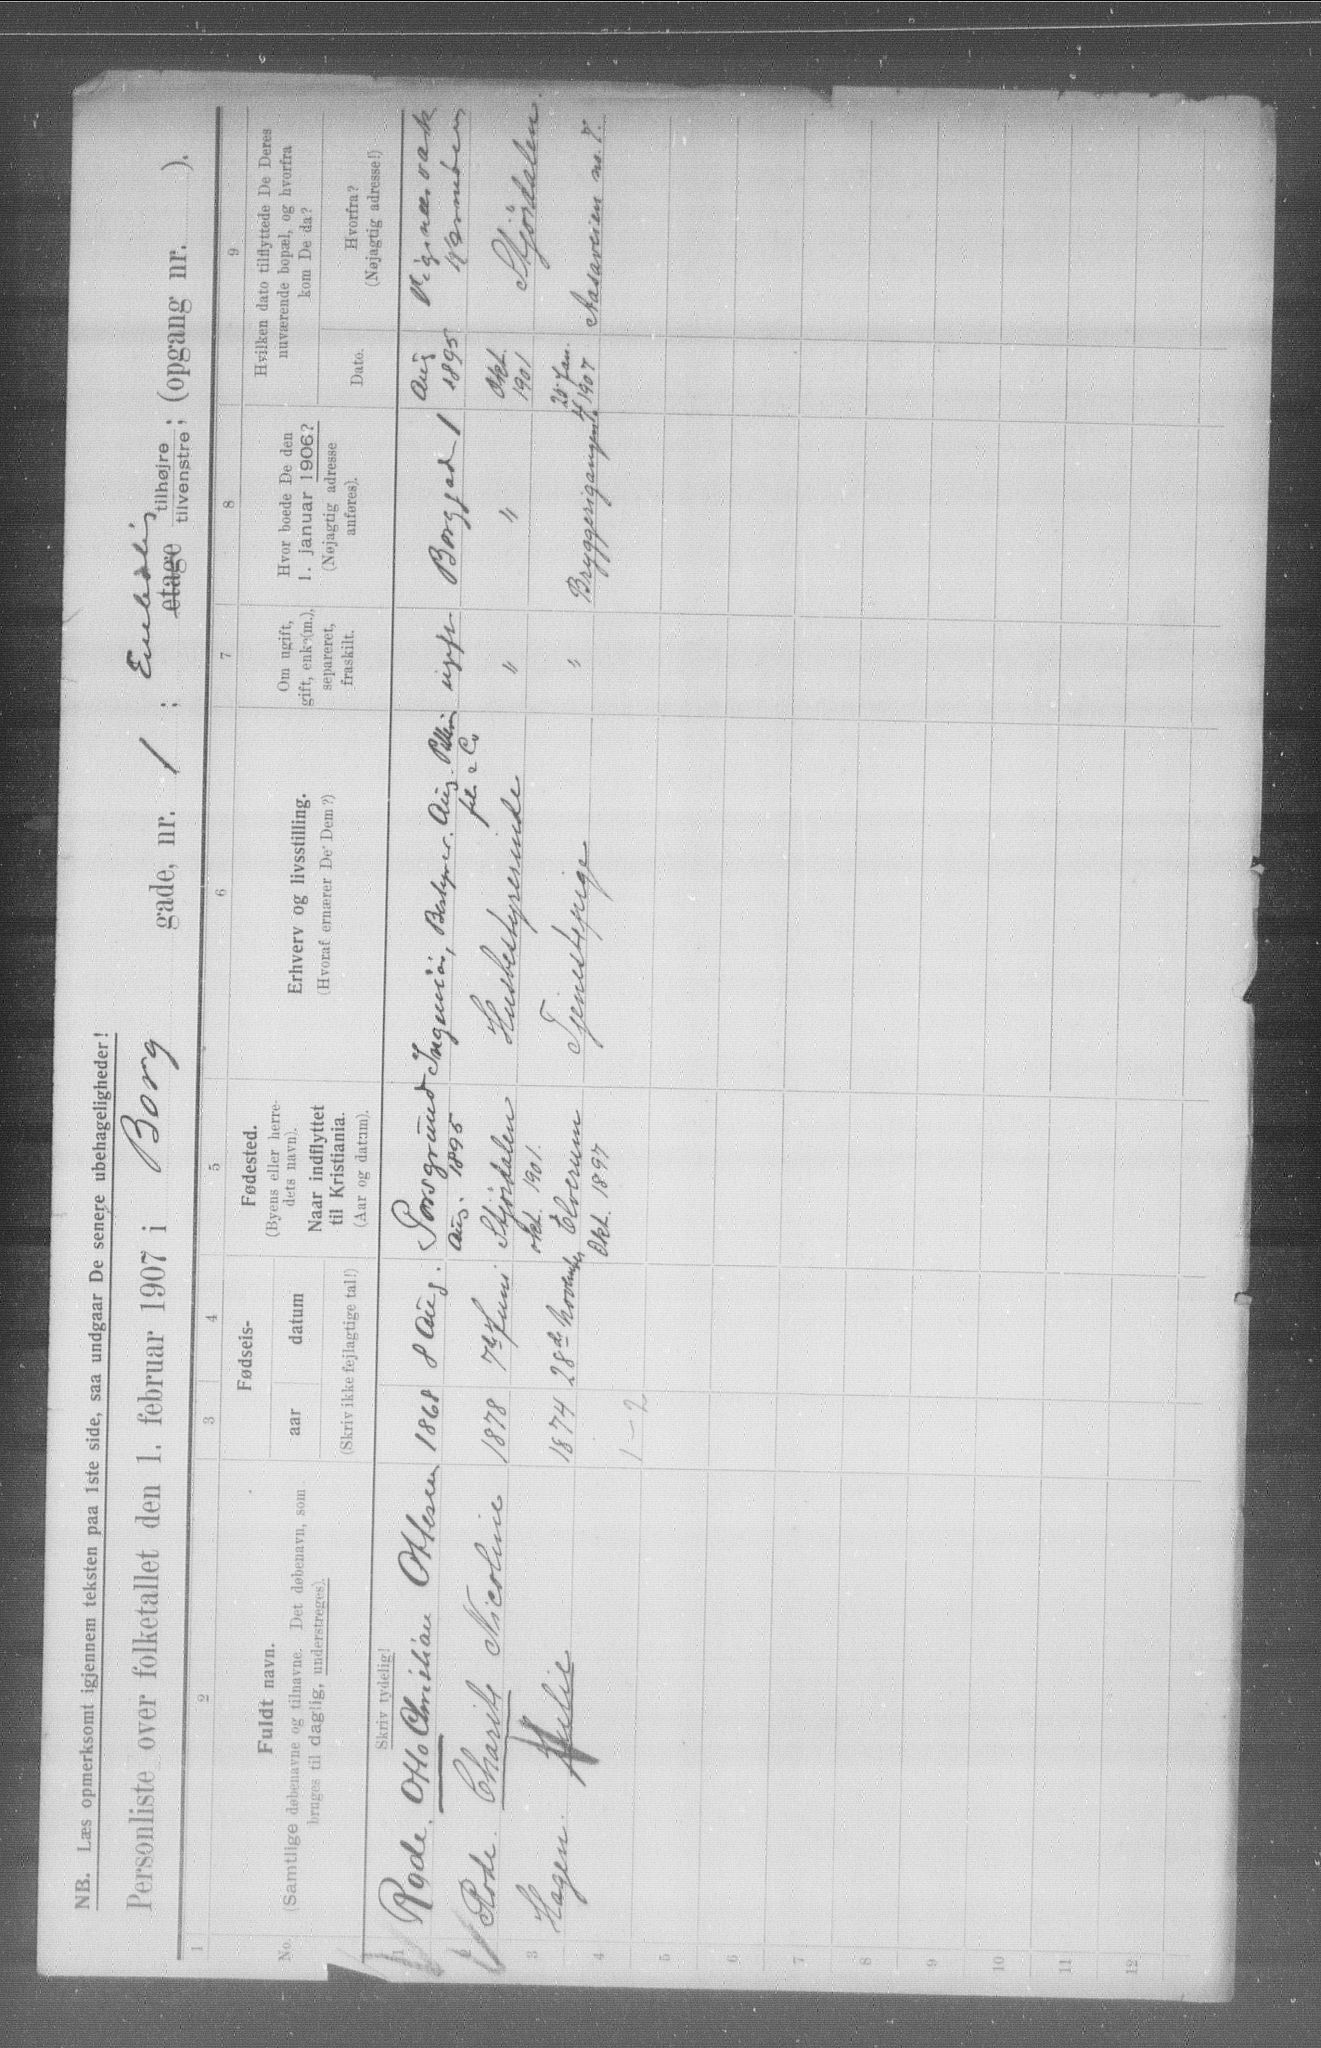 NB. Læs opmerksomt igjennem teksten paa 1ste side, saa undgaar De senere ubehageligheder!
Personliste over folketallet den 1. februar 1907 i Borg gade, nr. 1 ; etage tilhøjre tilvenstre; (opgang nr. ).
1 2 3 4 5 6 7 8 9
No.
Fuldt navn.
(Samtlige døbenavne og tilnavne. Det døbenavn, som
bruges til daglig, understreges).
Fødsels-
aar datum
(Skriv ikke fejlagtige tal!)
Fødested.
(Byens eller herre-
dets navn).
Naar indflyttet
til Kristiania.
(Aar og datum).
Erhverv og livsstilling.
(Hvoraf ernærer De Dem?)
Om ugift,
gift, enke(m.),
separeret,
fraskilt.
Hvor boede De den
1. januar 1906?
(Nøjagtig adresse
anføres).
Hvilken dato tilflyttede De Deres
nuværende bopæl, og hvorfra
kom De da?
Dato.
Hvorfra?
(Nøjagtig adresse!)
Skriv tydelig!
1 Rode. Otto Christian Ottesen 1868 8 Aug. Porsgrund Ingeniør, Bestyrer. Aug. ugift Borggad 1 Aug
Aug. 1895 & Co 1895
2 Rode. Charite Nicoline 1878 7de Juni Stjördalen Husbestyrerinde " " Okt. Stjördalen.
okt. 1901. 1901
3 Hagen. Julie 1874 28de November Elverum Tjenestepige " Bryggerigangen 4. 25 Jan. Aasaveien no. 7.
Okt. 1897 1907
1 – 2
4
5
6
7
8
9
10
11
12